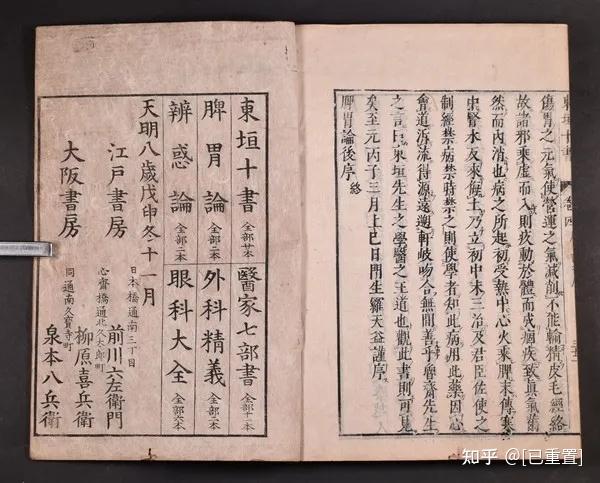 東垣十書 卷四
傷胃之元氣使營運之氣減削不能輸精皮毛經絡
故諸邪乘虛而入則疾動於體而成痼疾致真氣薾
然而内消也病之所起初受熱中心火乘脾末傳寒
中腎水反來侮土乃立初中末三治及君臣佐使之
制經禁病禁時禁之則使學者知此病用此藥因心
會通泝流得源遠遡軒岐吻合無間善乎魯齋先生
之言曰東垣先生之學醫之王道也觀此書則可見
矣至元丙子三月上巳日門生羅天益謹序
脾胃論後序 終
東垣十書 全部廿本 醫家七部書 全部十一本
脾胃論 全部二本 外科精義 全部二本
辨惑論 全部二本 眼科大全 全部六本
天明八歳戊申冬十一月
日本橋通南三丁目
江戸書房 前川六左衛門
心齋橋通北久太郎町
柳原喜兵衛
大阪書房
同通南久寶寺町
泉本八兵衛
知乎 @[已重置]